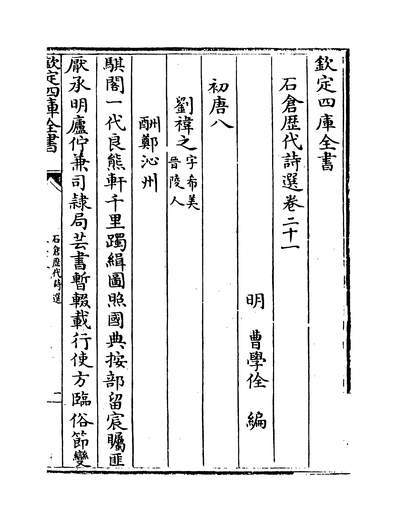 欽定四庫全書
石倉歷代詩選卷二十一
明 曹學佺 編
初唐八
劉禕之字希美晉陵人
酬鄭沁州
騏閣一代良熊軒千里躅緝圖照國典按部留宸矚匪
厭承明廬佇兼司隸局芸書暫輟載行使方臨俗節變
欽定四庫全書
石倉歷代詩選